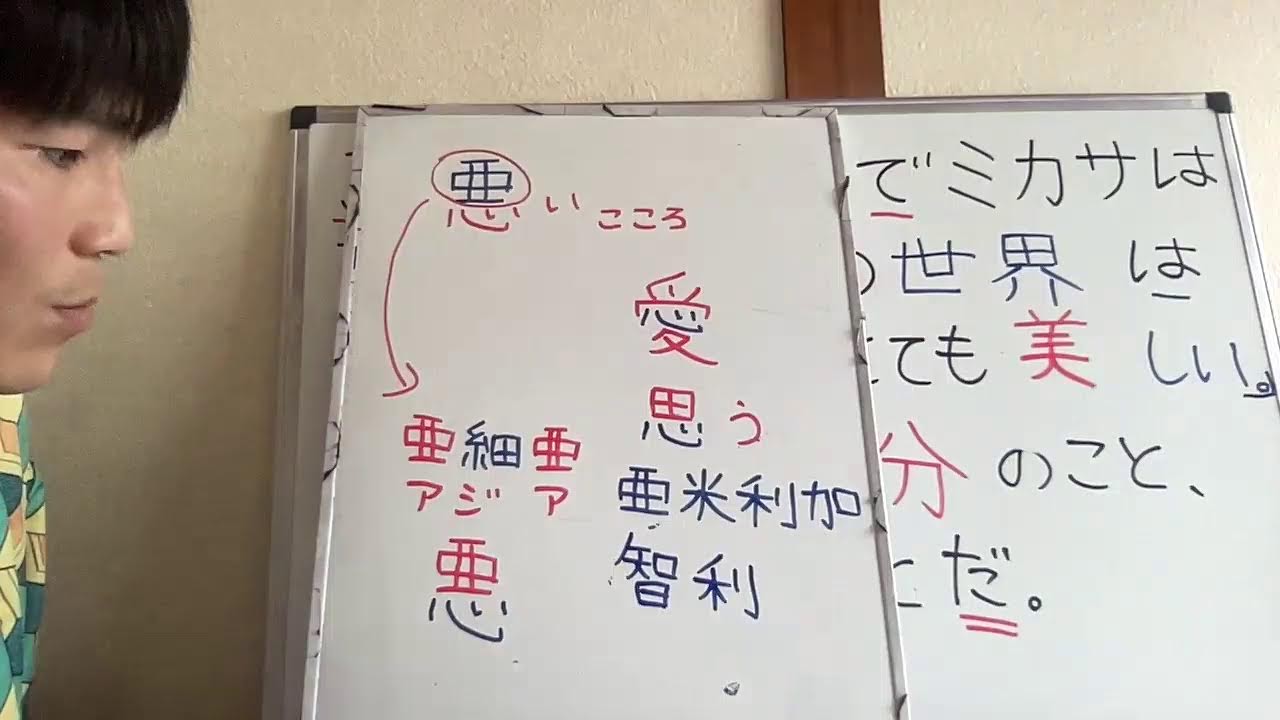 悪い こころ
愛
思う
亜細亜
アジア
亜米利加
悪
智利
でミカサは
世界は
ても美しい。
分のこと、
だ。